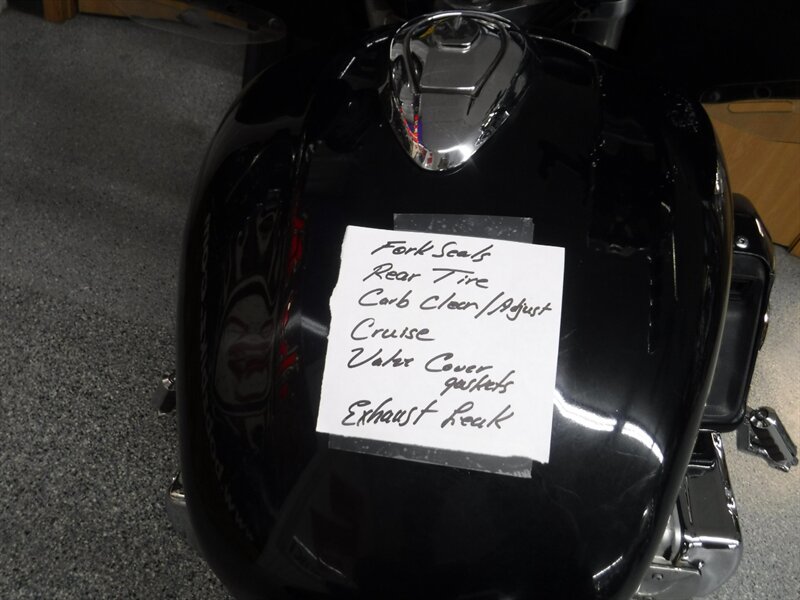 Fork Seals
Rear Tire
Carb Clean/Adjust
Cruise
Valve Cover
gaskets
Exhaust Leak